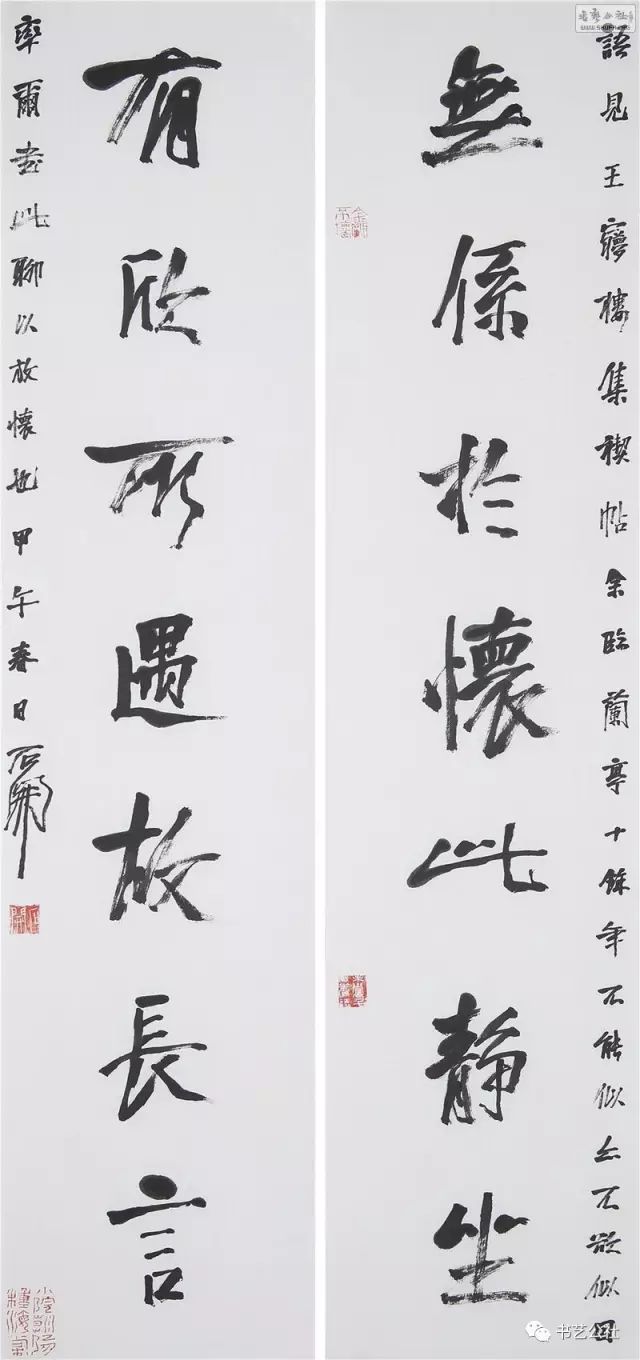 語見王夢樓集禊帖余臨蘭亭十餘年不能似亦不欲似因
無係於懷此靜坐
有欣所遇故長言
率爾書此聊以放懷也甲午春日石開
书艺公社